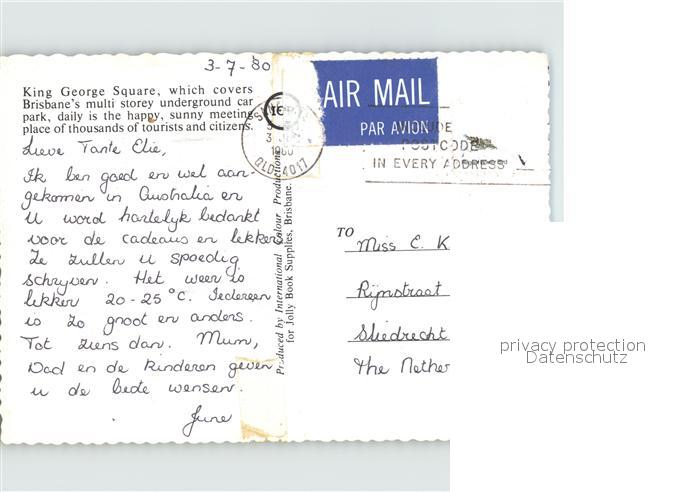 3-7-80
King George Square, which covers
Brisbane's multi storey underground car
park, daily is the happy, sunny meeting
place of thousands of tourists and citizens.
Lieve Tante Elie,
Ik ben goed en wel aan-
gekomen in Australia en
U word hartelyk bedankt
voor de cadeaus en lekker.
Ze zullen u spoedig
schryven. Het weer is
lekker 20-25°C. Iedereen
is zo groot en anders.
Tot ziens dan. Mum,
Dad en de kinderen geven
u de beste wensen.
June
Produced by International Colour Productions
for Jolly Book Supplies, Brisbane.
1980
QLD 4017
AIR MAIL
PAR AVION
POSTCODE
IN EVERY ADDRESS
TO
Miss E. K
Rijnstraat
Sliedrecht
The Nether
privacy protection
Datenschutz